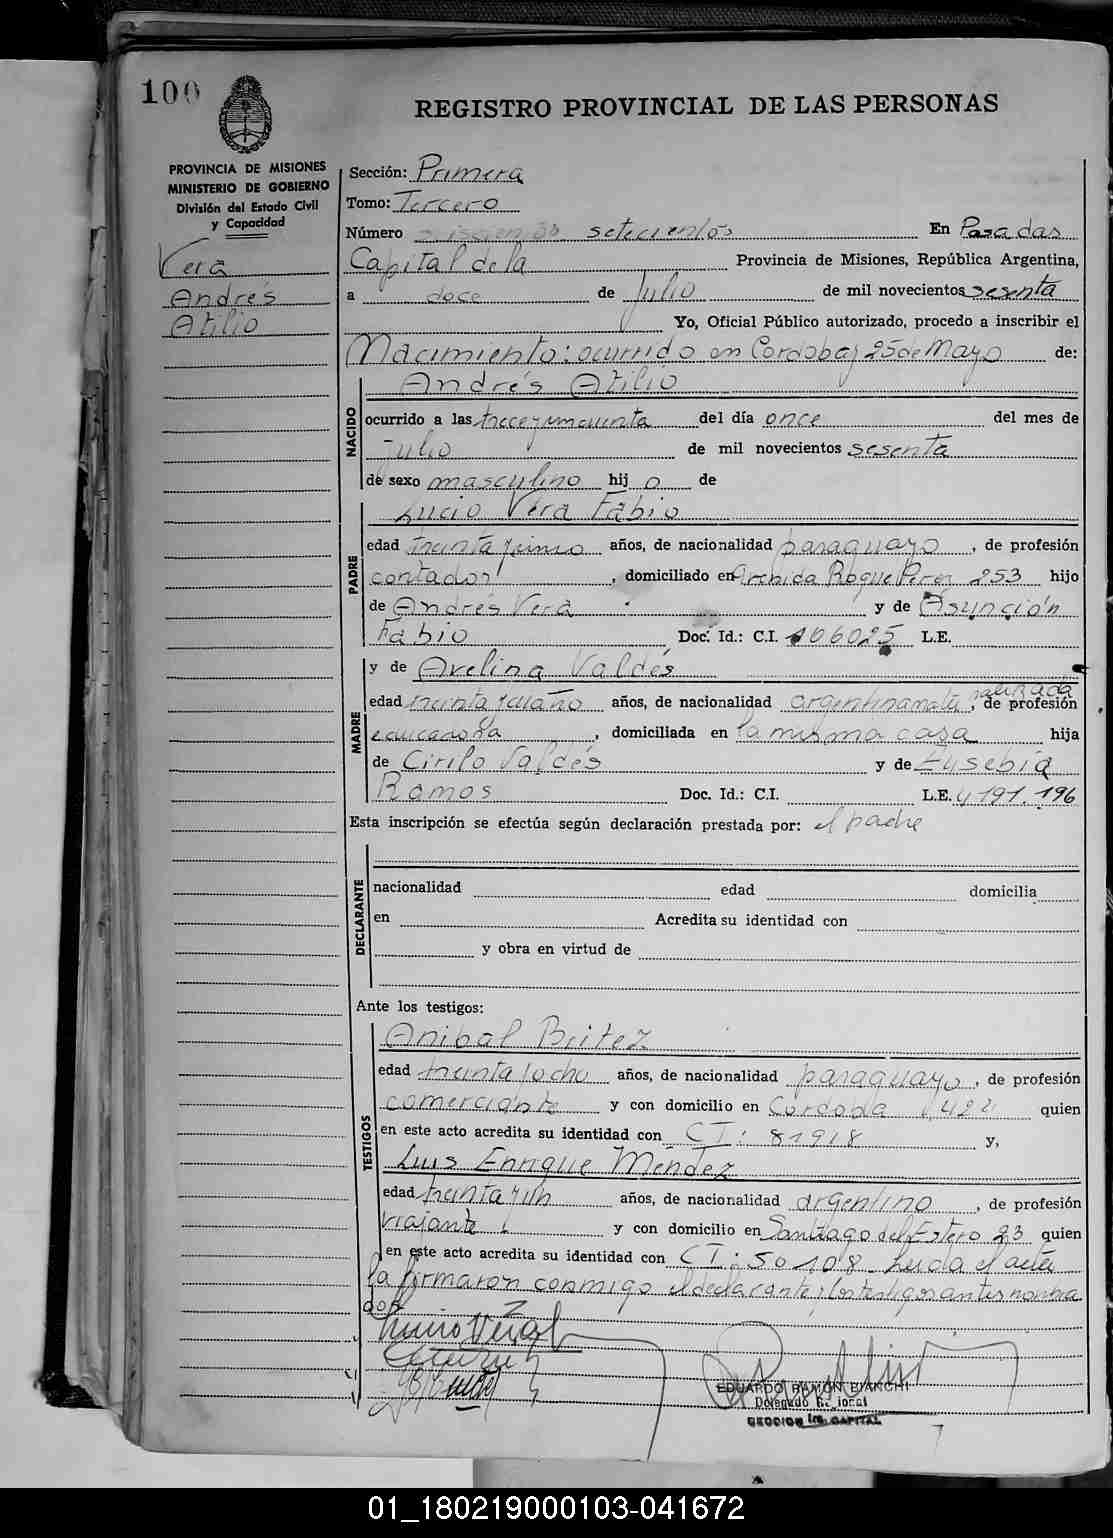 100
REGISTRO PROVINCIAL DE LAS PERSONAS
PROVINCIA DE MISIONES
MINISTERIO DE GOBIERNO
División del Estado Civil
y Capacidad
Vera
Andrés
Atilio
Sección: Primera
Tomo: Tercero
Número setecientos En Posadas
Capital de la Provincia de Misiones, República Argentina,
a doce de Julio de mil novecientos sesenta
Yo, Oficial Público autorizado, procedo a inscribir el
Nacimiento: ocurrido en Cordoba y 25 de Mayo de:
Andrés Atilio
NACIDO
ocurrido a las trece y cincuenta del día once del mes de
julio de mil novecientos sesenta
de sexo masculino hij o de
Lucio Vera Fabio
PADRE
edad treinta y cinco años, de nacionalidad paraguayo, de profesión
contador, domiciliado en Roque Perez 253 hijo
de Andrés Vera y de Asunción
Fabio Doc. Id.: C.I. 106025 L.E.
y de Avelina Valdés
MADRE
edad treinta y cuatro años, de nacionalidad argentina natu ralizada, de profesión
educadora, domiciliada en la misma casa hija
de Cirilo Valdés y de Eusebia
Ramos Doc. Id.: C.I. L.E. 4191.196
Esta inscripción se efectúa según declaración prestada por: el padre
DECLARANTE
nacionalidad edad domicilia
en Acredita su identidad con
y obra en virtud de
Ante los testigos:
TESTIGOS
Anibal Britez
edad treinta y ocho años, de nacionalidad paraguayo, de profesión
comerciante y con domicilio en Cordoba 424 quien
en este acto acredita su identidad con CI: 81918 y,
Luis Enrique Méndez
edad treinta y un años, de nacionalidad argentino, de profesión
viajante y con domicilio en Santiago del Estero 23 quien
en este acto acredita su identidad con CI: 50108. Leida el acta
la firmaron conmigo el declarante y los testigos antes nombra
dos
EDUARDO RAMON BIANCHI
Delegado Regional
SECCION 1ra. CAPITAL
01_180219000103-041672